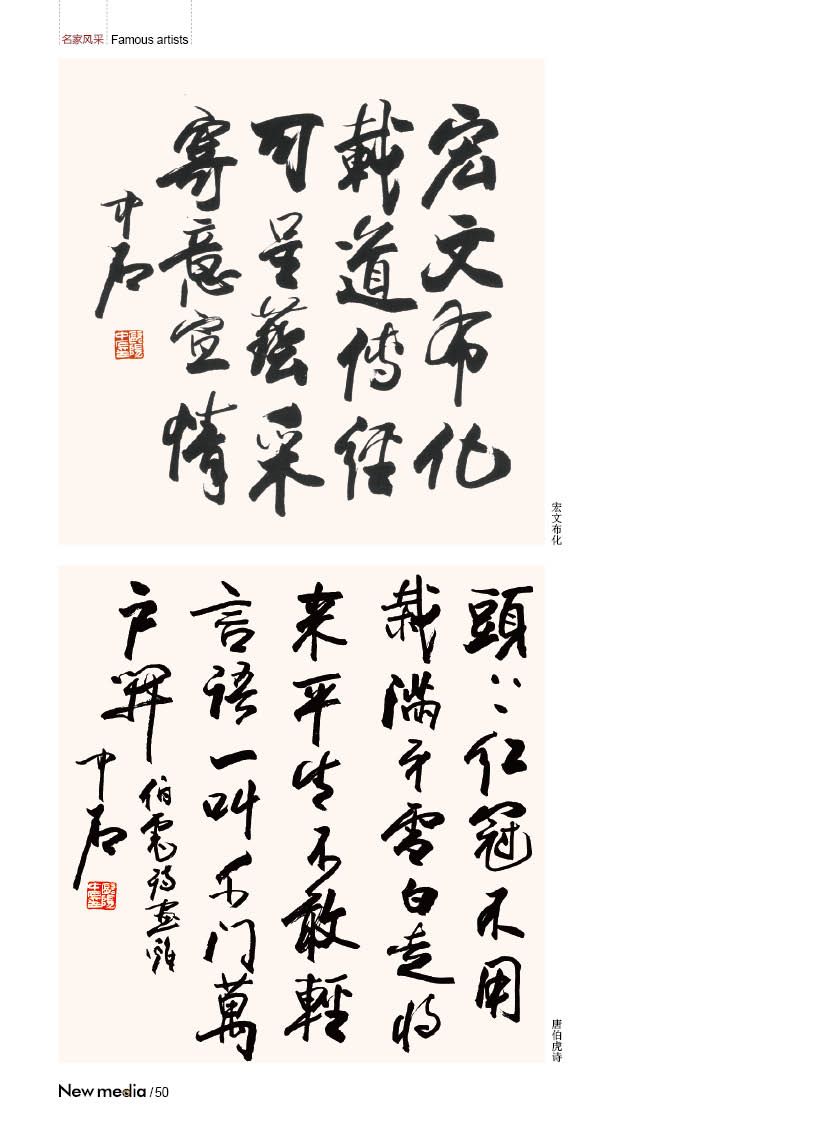 名家风采 Famous artists
宏文布化
載道傳经
可呈藝采
寄意宣情
中石
宏文布化
頭上红冠不用
裁满身雪白走将
来平生不敢輕
言語一叫千门萬
户開
伯虎诗画雞
中石
唐伯虎诗
New media /50